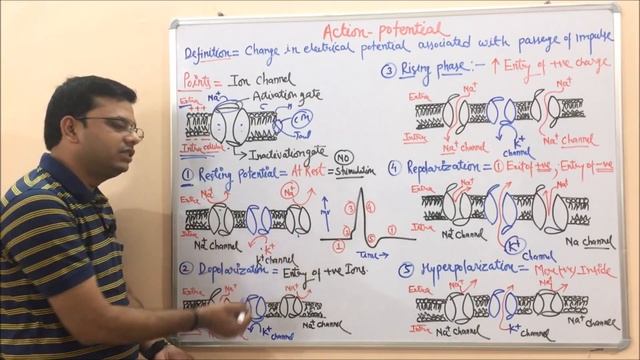 Action-potential
Definition = Change in electrical potential associated with passege of impulse
Points = Ion channel
Na+ Activation gate
Extra +++
C
CM
Tail
Intracellular
Inactivation gate
① Resting Potential = At Rest = NO Stimulation
Extra Na+ Na+
Intra
Na+ channel K+ K+ channel
mV
3 4 2 1 5 1
Time→
② Depolarization = Entry of +ve Ions.
Extra Na+ Na+
K+ channel
Na+ channel
③ Rising phase:- ↑ Entry of +ve charge
Extra Na+ Na+
Intra
Na+ channel K+ channel Na+ channel
④ Repolarization = ① Exit of +ve, Entry of -ve
Extra Na+ Na+
Intra
Na+ channel K+ channel Na channel
⑤ Hyperpolarization = More +ve Inside
Extra Na+ Na+
Intra
Na+ channel K+ channel Na+ channel